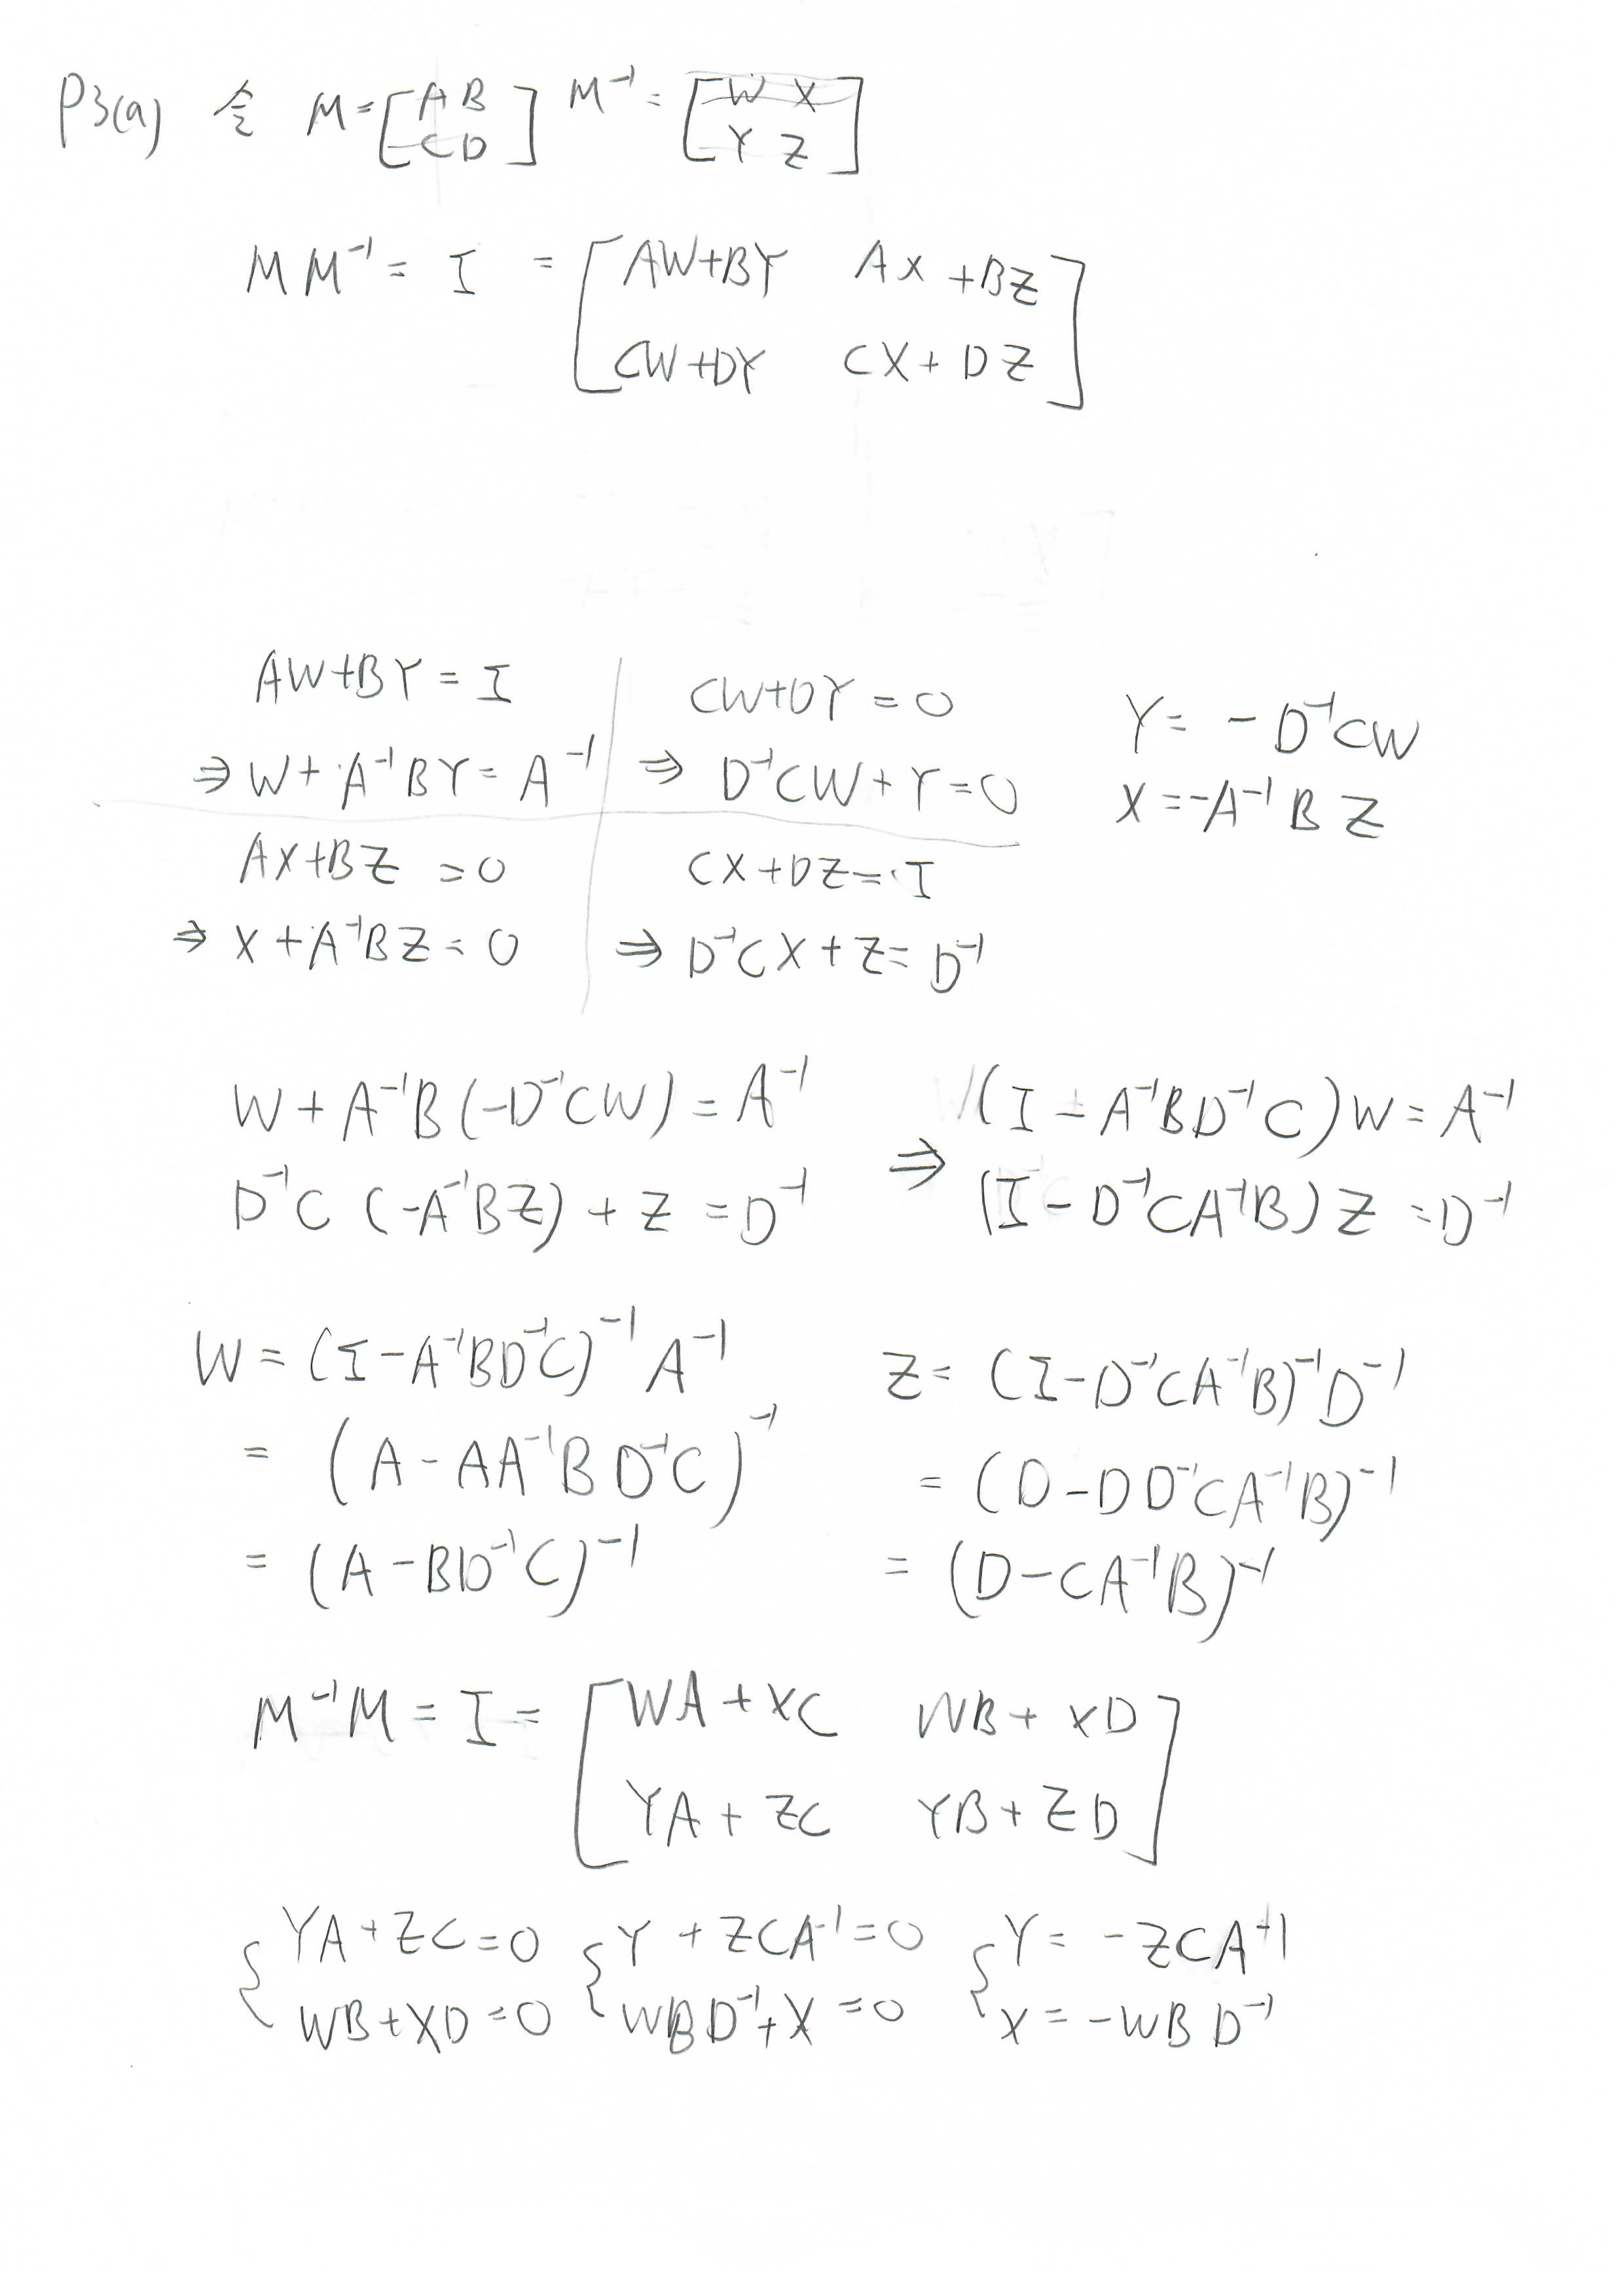 P3(a) 令 M = [A B; C D] M⁻¹ = [W X; Y Z]
M M⁻¹ = I = [AW+BY AX+BZ; CW+DY CX+DZ]
AW+BY = I
⇒ W + A⁻¹BY = A⁻¹
CW+DY = 0
⇒ D⁻¹CW + Y = 0
Y = -D⁻¹CW
X = -A⁻¹BZ
AX+BZ = 0
⇒ X + A⁻¹BZ = 0
CX+DZ = I
⇒ D⁻¹CX + Z = D⁻¹
W + A⁻¹B(-D⁻¹CW) = A⁻¹
D⁻¹C(-A⁻¹BZ) + Z = D⁻¹
⇒ (I - A⁻¹BD⁻¹C)W = A⁻¹
(I - D⁻¹CA⁻¹B)Z = D⁻¹
W = (I-A⁻¹BD⁻¹C)⁻¹A⁻¹
= (A-AA⁻¹BD⁻¹C)⁻¹
= (A-BD⁻¹C)⁻¹
Z = (I-D⁻¹CA⁻¹B)⁻¹D⁻¹
= (D-DD⁻¹CA⁻¹B)⁻¹
= (D-CA⁻¹B)⁻¹
M⁻¹M = I = [WA+XC WB+XD; YA+ZC YB+ZD]
{YA+ZC=0 {Y+ZCA⁻¹=0 {Y=-ZCA⁻¹
WB+XD=0 WBD⁻¹+X=0 X=-WBD⁻¹